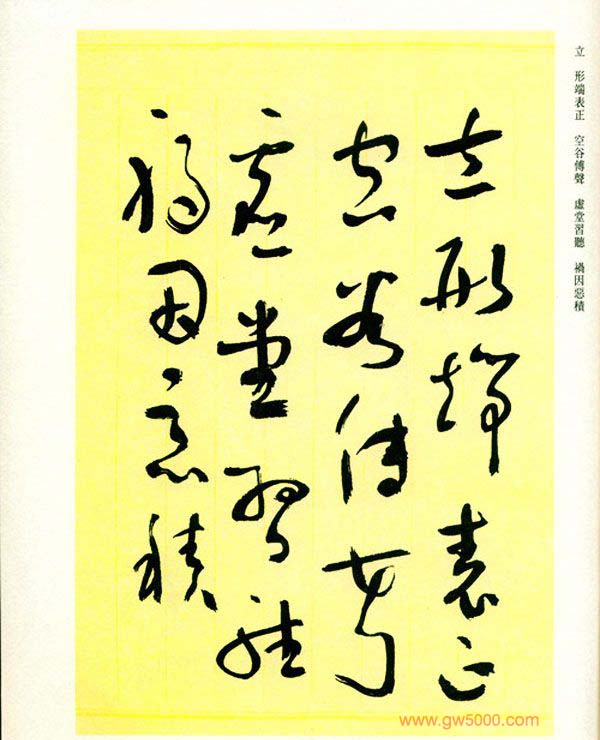 立　形端表正　空谷傳聲　虛堂習聽　禍因惡積
立形端表正
空谷傳聲
虛堂習聽
禍因惡積
www.gw5000.com